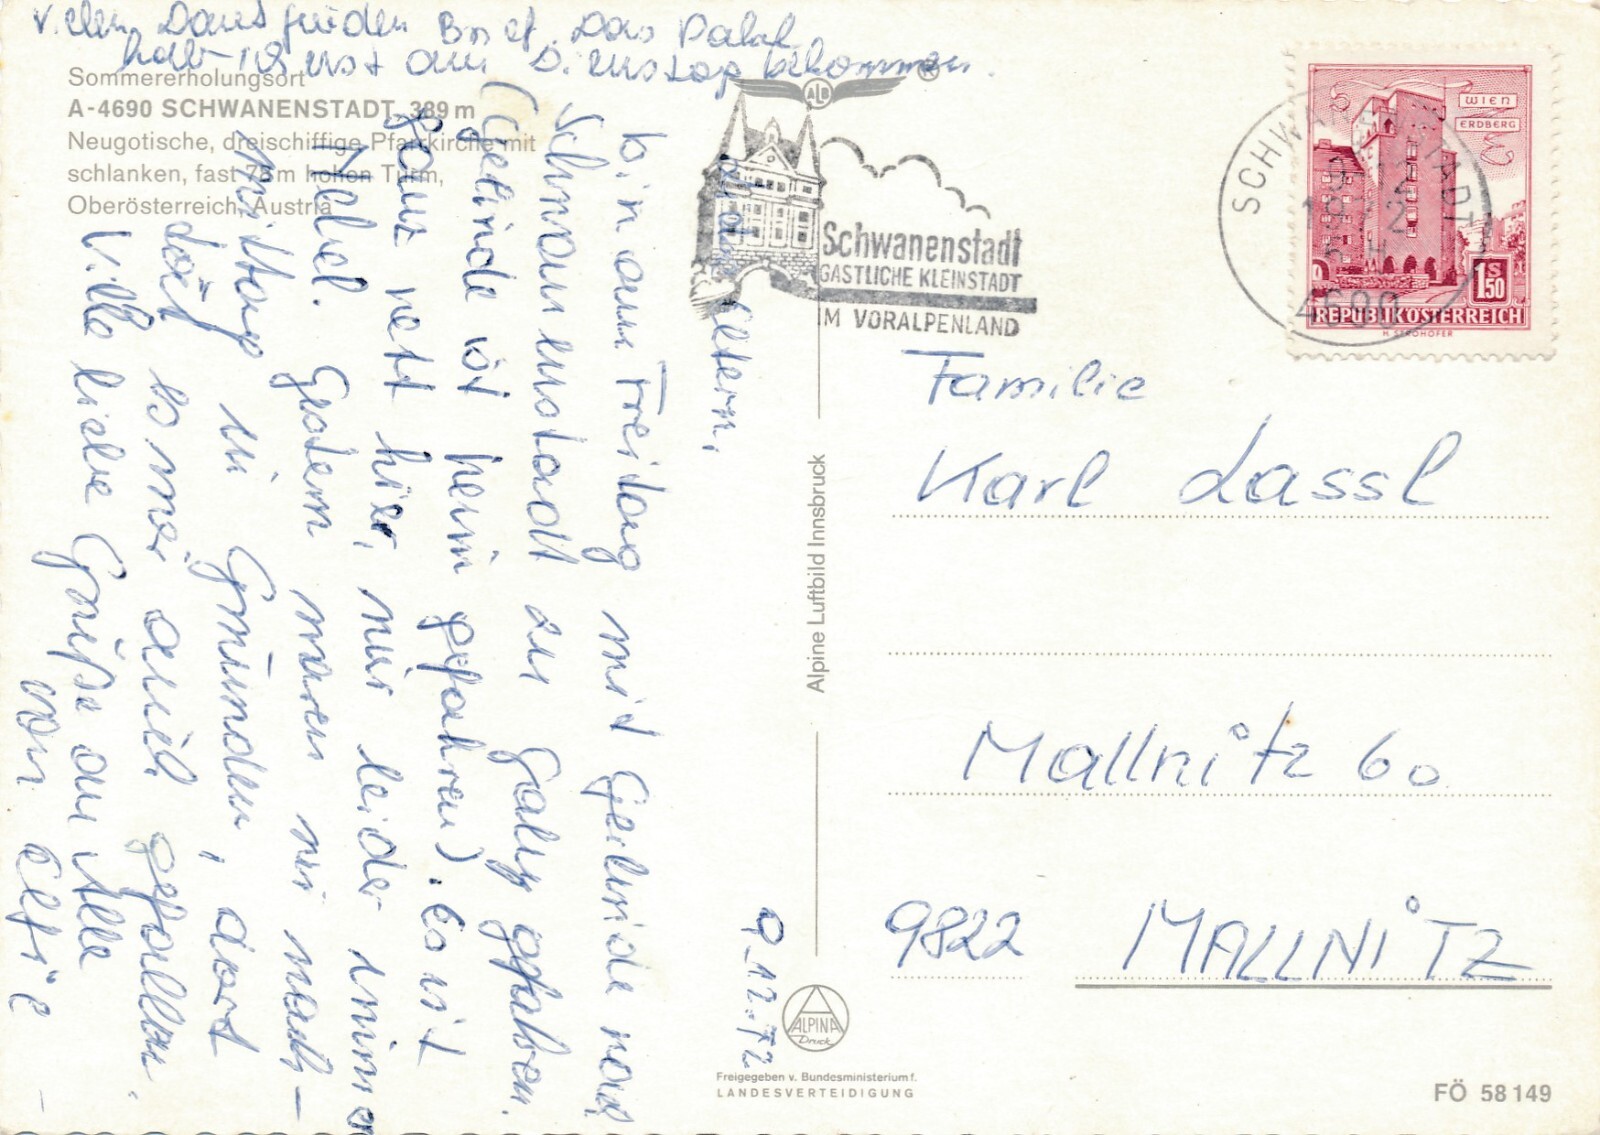 Vielen Dank für den Brief. Das Paket
habe ich erst am Dienstag bekommen.
Sommererholungsort
A-4690 SCHWANENSTADT, 389 m
Neugotische, dreischiffige Pfarrkirche mit
schlanken, fast 78 m hohen Turm,
Oberösterreich, Austria
Liebe Eltern,
bin am Freitag mit Gerlinde nach
Schwanenstadt zu Gaby gefahren.
(Gerlinde ist heim gefahren). Es ist
ganz nett hier, nur leider immer
Nebel. Gestern waren wir nach-
mittag in Gmunden, dort
hat es mir gefallen.
Viele liebe Grüße an Alle
von Elfie
9.12.72
ALB
Schwanenstadt
GASTLICHE KLEINSTADT
IM VORALPENLAND
SCHWANENSTADT
4690
WIEN
ERDBERG
1S50
REPUBLIK ÖSTERREICH
Familie
Karl Lassl
Mallnitz 60
9822 MALLNITZ
Alpine Luftbild Innsbruck
ALPINA
Druck
Freigegeben v. Bundesministerium f.
LANDESVERTEIDIGUNG
FÖ 58 149